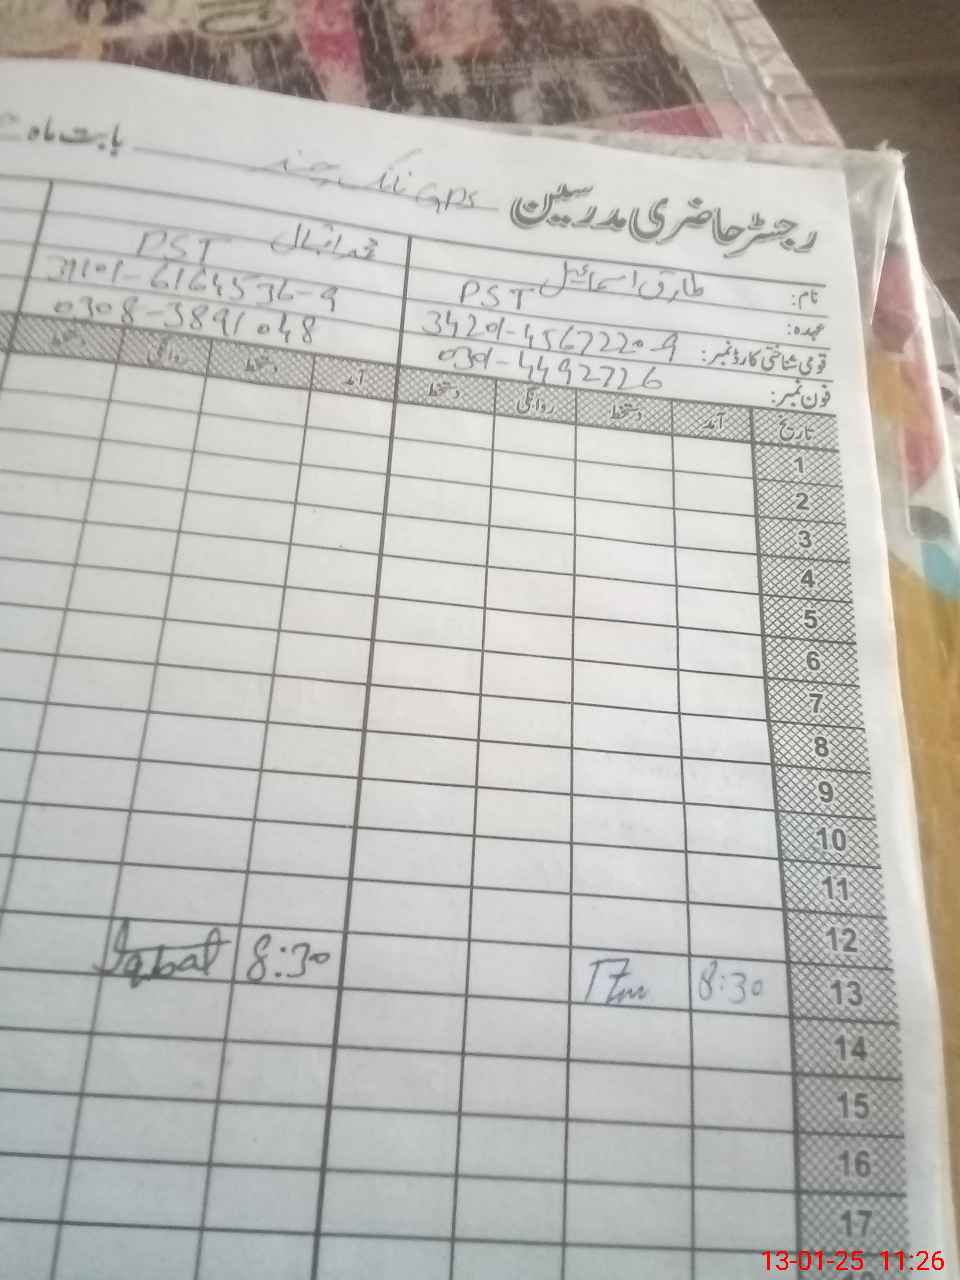 رجسٹر حاضری مدرسین GPS نانک چند بابت ماہ
نام: طارق اسماعیل محمد اقبال
عہدہ: PST PST
قومی شناختی کارڈ نمبر: 34201-4567220-9 31101-6164536-9
فون نمبر: 0301-4492726 0308-3891048
تاریخ آمد دستخط روانگی دستخط آمد دستخط روانگی دستخط
1
2
3
4
5
6
7
8
9
10
11
12
13 8:30 8:30 Iqbal
14
15
16
17
13-01-25 11:26